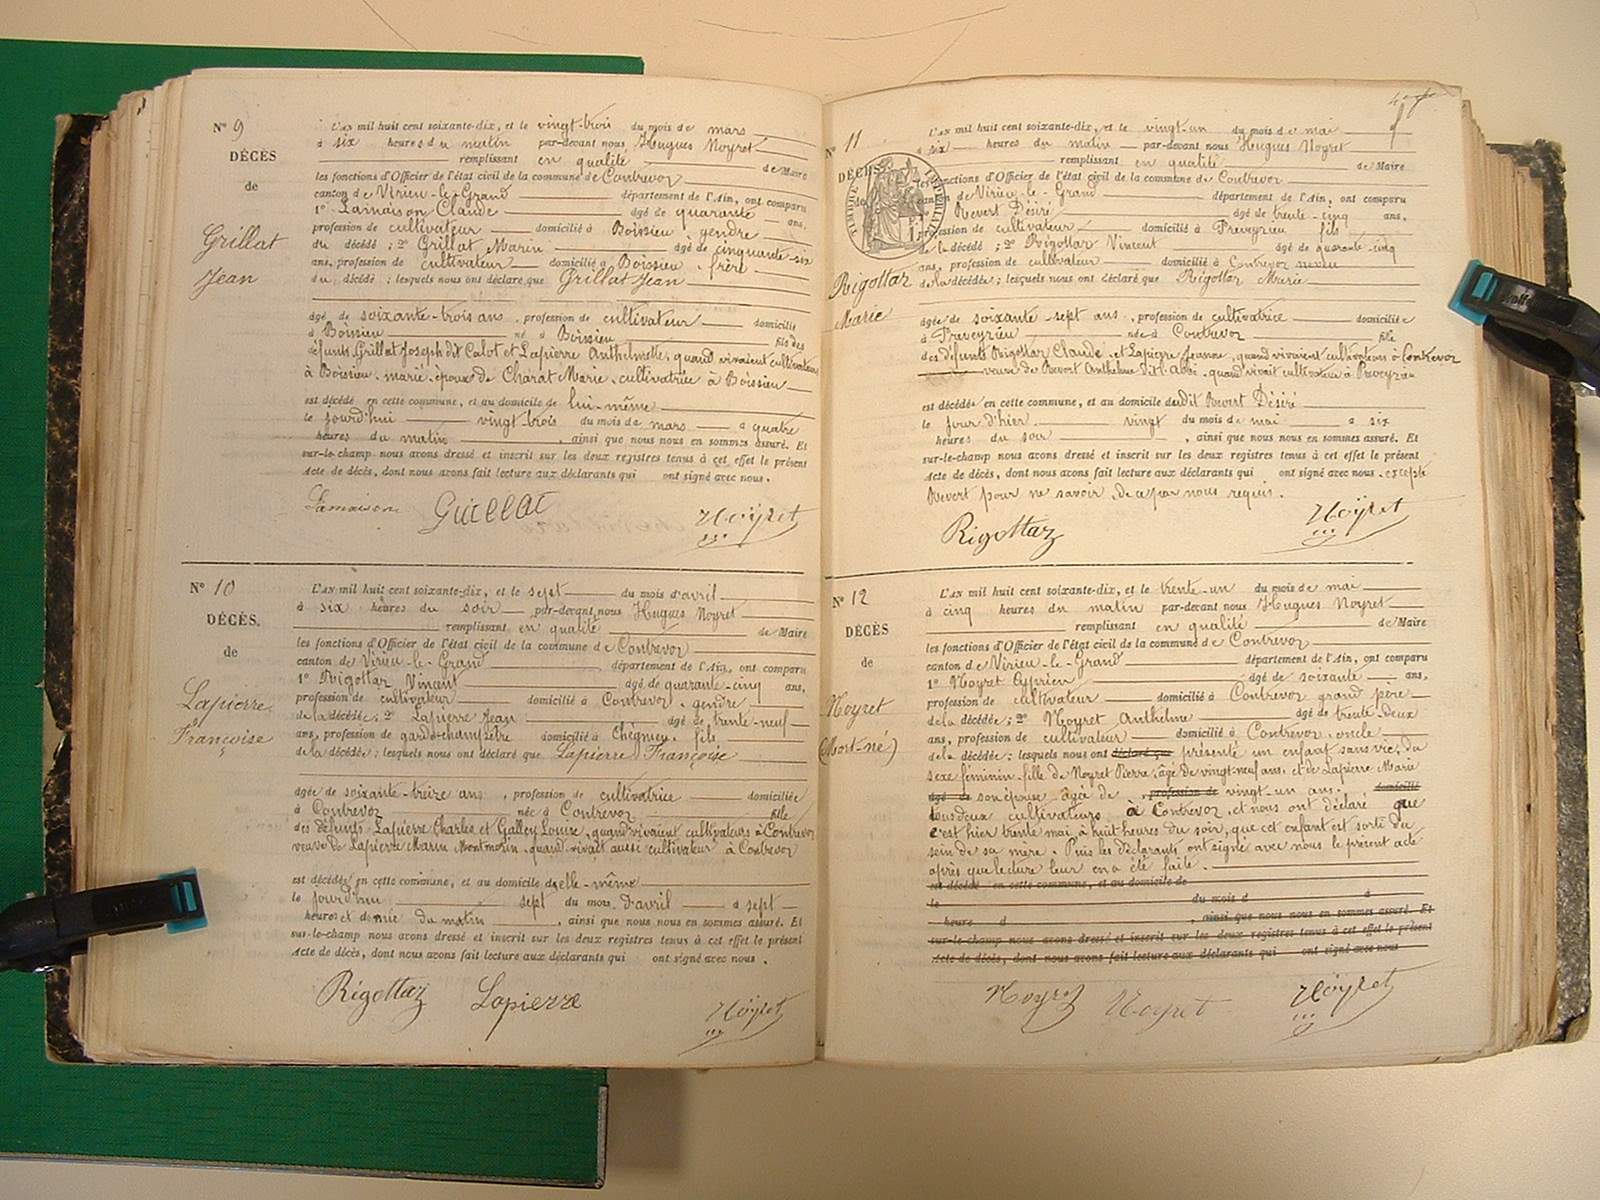 N° 9
DÉCÈS
de
Grillat
Jean
L'an mil huit cent soixante-dix, et le vingt-trois du mois de mars
à six heures du matin par-devant nous Hugues Noyret
remplissant en qualité de Maire
les fonctions d'Officier de l'état civil de la commune de Contrevoz
canton de Virieu-le-Grand département de l'Ain, ont comparu
1° Lamaison Claude âgé de quarante ans,
profession de cultivateur domicilié à Boissieu, gendre
du décédé ; 2° Grillat Marin âgé de cinquante-six
ans, profession de cultivateur domicilié à Boissieu, frère
du décédé ; lesquels nous ont déclaré que Grillat Jean
âgé de soixante-trois ans, profession de cultivateur domicilié
à Boissieu né à Boissieu fils des
défunts Grillat Joseph dit Calot et Lapierre Anthelmette, quand vivaient cultivateurs
à Boissieu, marié époux de Charat Marie, cultivatrice à Boissieu
est décédé en cette commune, et au domicile de lui-même
le jourd'hui vingt-trois du mois de mars à quatre
heures du matin, ainsi que nous nous en sommes assuré. Et
sur-le-champ nous avons dressé et inscrit sur les deux registres tenus à cet effet le présent
acte de décès, dont nous avons fait lecture aux déclarants qui ont signé avec nous.
Lamaison Grillat Noÿret
N° 10
DÉCÈS.
de
Lapierre
Françoise
L'an mil huit cent soixante-dix, et le sept du mois d'avril
à six heures du soir par-devant nous Hugues Noyret
remplissant en qualité de Maire
les fonctions d'Officier de l'état civil de la commune de Contrevoz
canton de Virieu-le-Grand département de l'Ain, ont comparu
1° Rigottaz Vincent âgé de quarante-cinq ans,
profession de cultivateur domicilié à Contrevoz, gendre
de la décédée ; 2° Lapierre Jean âgé de trente-neuf
ans, profession de garde-champêtre domicilié à Cheignieu, fils
de la décédée ; lesquels nous ont déclaré que Lapierre Françoise
âgée de soixante-treize ans, profession de cultivatrice domiciliée
à Contrevoz née à Contrevoz fille
des défunts Lapierre Charles et Galley Louise, quand vivaient cultivateurs à Contrevoz
veuve de Lapierre Marin Montmorin, quand vivait aussi cultivateur à Contrevoz
est décédée en cette commune, et au domicile d'elle-même
le jourd'hui sept du mois d'avril à sept
heures et demie du matin, ainsi que nous nous en sommes assuré. Et
sur-le-champ nous avons dressé et inscrit sur les deux registres tenus à cet effet le présent
acte de décès, dont nous avons fait lecture aux déclarants qui ont signé avec nous.
Rigottaz Lapierre Noÿret
N° 11
DÉCÈS
TIMBRE IMPÉRIAL
Rigottaz
Marie
L'an mil huit cent soixante-dix, et le vingt-un du mois de mai
à six heures du matin par-devant nous Hugues Noyret
remplissant en qualité de Maire
les fonctions d'Officier de l'état civil de la commune de Contrevoz
canton de Virieu-le-Grand département de l'Ain, ont comparu
Revert Désiré âgé de trente-cinq ans,
profession de cultivateur domicilié à Preveyzieu fils
de la décédée ; 2° Rigottaz Vincent âgé de quarante-cinq
ans, profession de cultivateur domicilié à Contrevoz neveu
de la décédée ; lesquels nous ont déclaré que Rigottaz Marie
âgée de soixante-sept ans, profession de cultivatrice domiciliée
à Preveyzieu née à Contrevoz fille
des défunts Rigottaz Claude et Lapierre Jeanne, quand vivaient cultivateurs à Contrevoz
veuve de Revert Anthelme, quand vivait cultivateur à Preveyzieu
est décédée en cette commune, et au domicile dudit Revert Désiré
le jour d'hier vingt du mois de mai à six
heures du soir, ainsi que nous nous en sommes assuré. Et
sur-le-champ nous avons dressé et inscrit sur les deux registres tenus à cet effet le présent
acte de décès, dont nous avons fait lecture aux déclarants qui ont signé avec nous. excepté
Revert pour ne savoir, de ce par nous requis.
Rigottaz Noÿret
N° 12
DÉCÈS
de
Noyret
(Mort-né)
L'an mil huit cent soixante-dix, et le trente-un du mois de mai
à cinq heures du matin par-devant nous Hugues Noyret
remplissant en qualité de Maire
les fonctions d'Officier de l'état civil de la commune de Contrevoz
canton de Virieu-le-Grand département de l'Ain, ont comparu
1° Noyret Cyprien âgé de soixante ans,
profession de cultivateur domicilié à Contrevoz grand père
de la décédée ; 2° Noyret Anthelme âgé de trente-deux
ans, profession de cultivateur domicilié à Contrevoz, oncle
de la décédée ; lesquels nous ont déclaré que présenté un enfant sans vie, du
sexe féminin, fille de Noyret Pierre, âgé de vingt-neuf ans, et de Lapierre Marie
âgé de son épouse, âgée de profession de vingt-un ans, domicilié
tous deux cultivateurs à Contrevoz, et nous ont déclaré que
c'est hier trente mai, à huit heures du soir, que cet enfant est sorti du
sein de sa mère. Puis les déclarants ont signé avec nous le présent acte
après que lecture leur en a été faite.
est décédé en cette commune, et au domicile de
le du mois d à
heure d, ainsi que nous nous en sommes assuré. Et
sur-le-champ nous avons dressé et inscrit sur les deux registres tenus à cet effet le présent
acte de décès, dont nous avons fait lecture aux déclarants qui ont signé avec nous
Noyret Noyret Noÿret